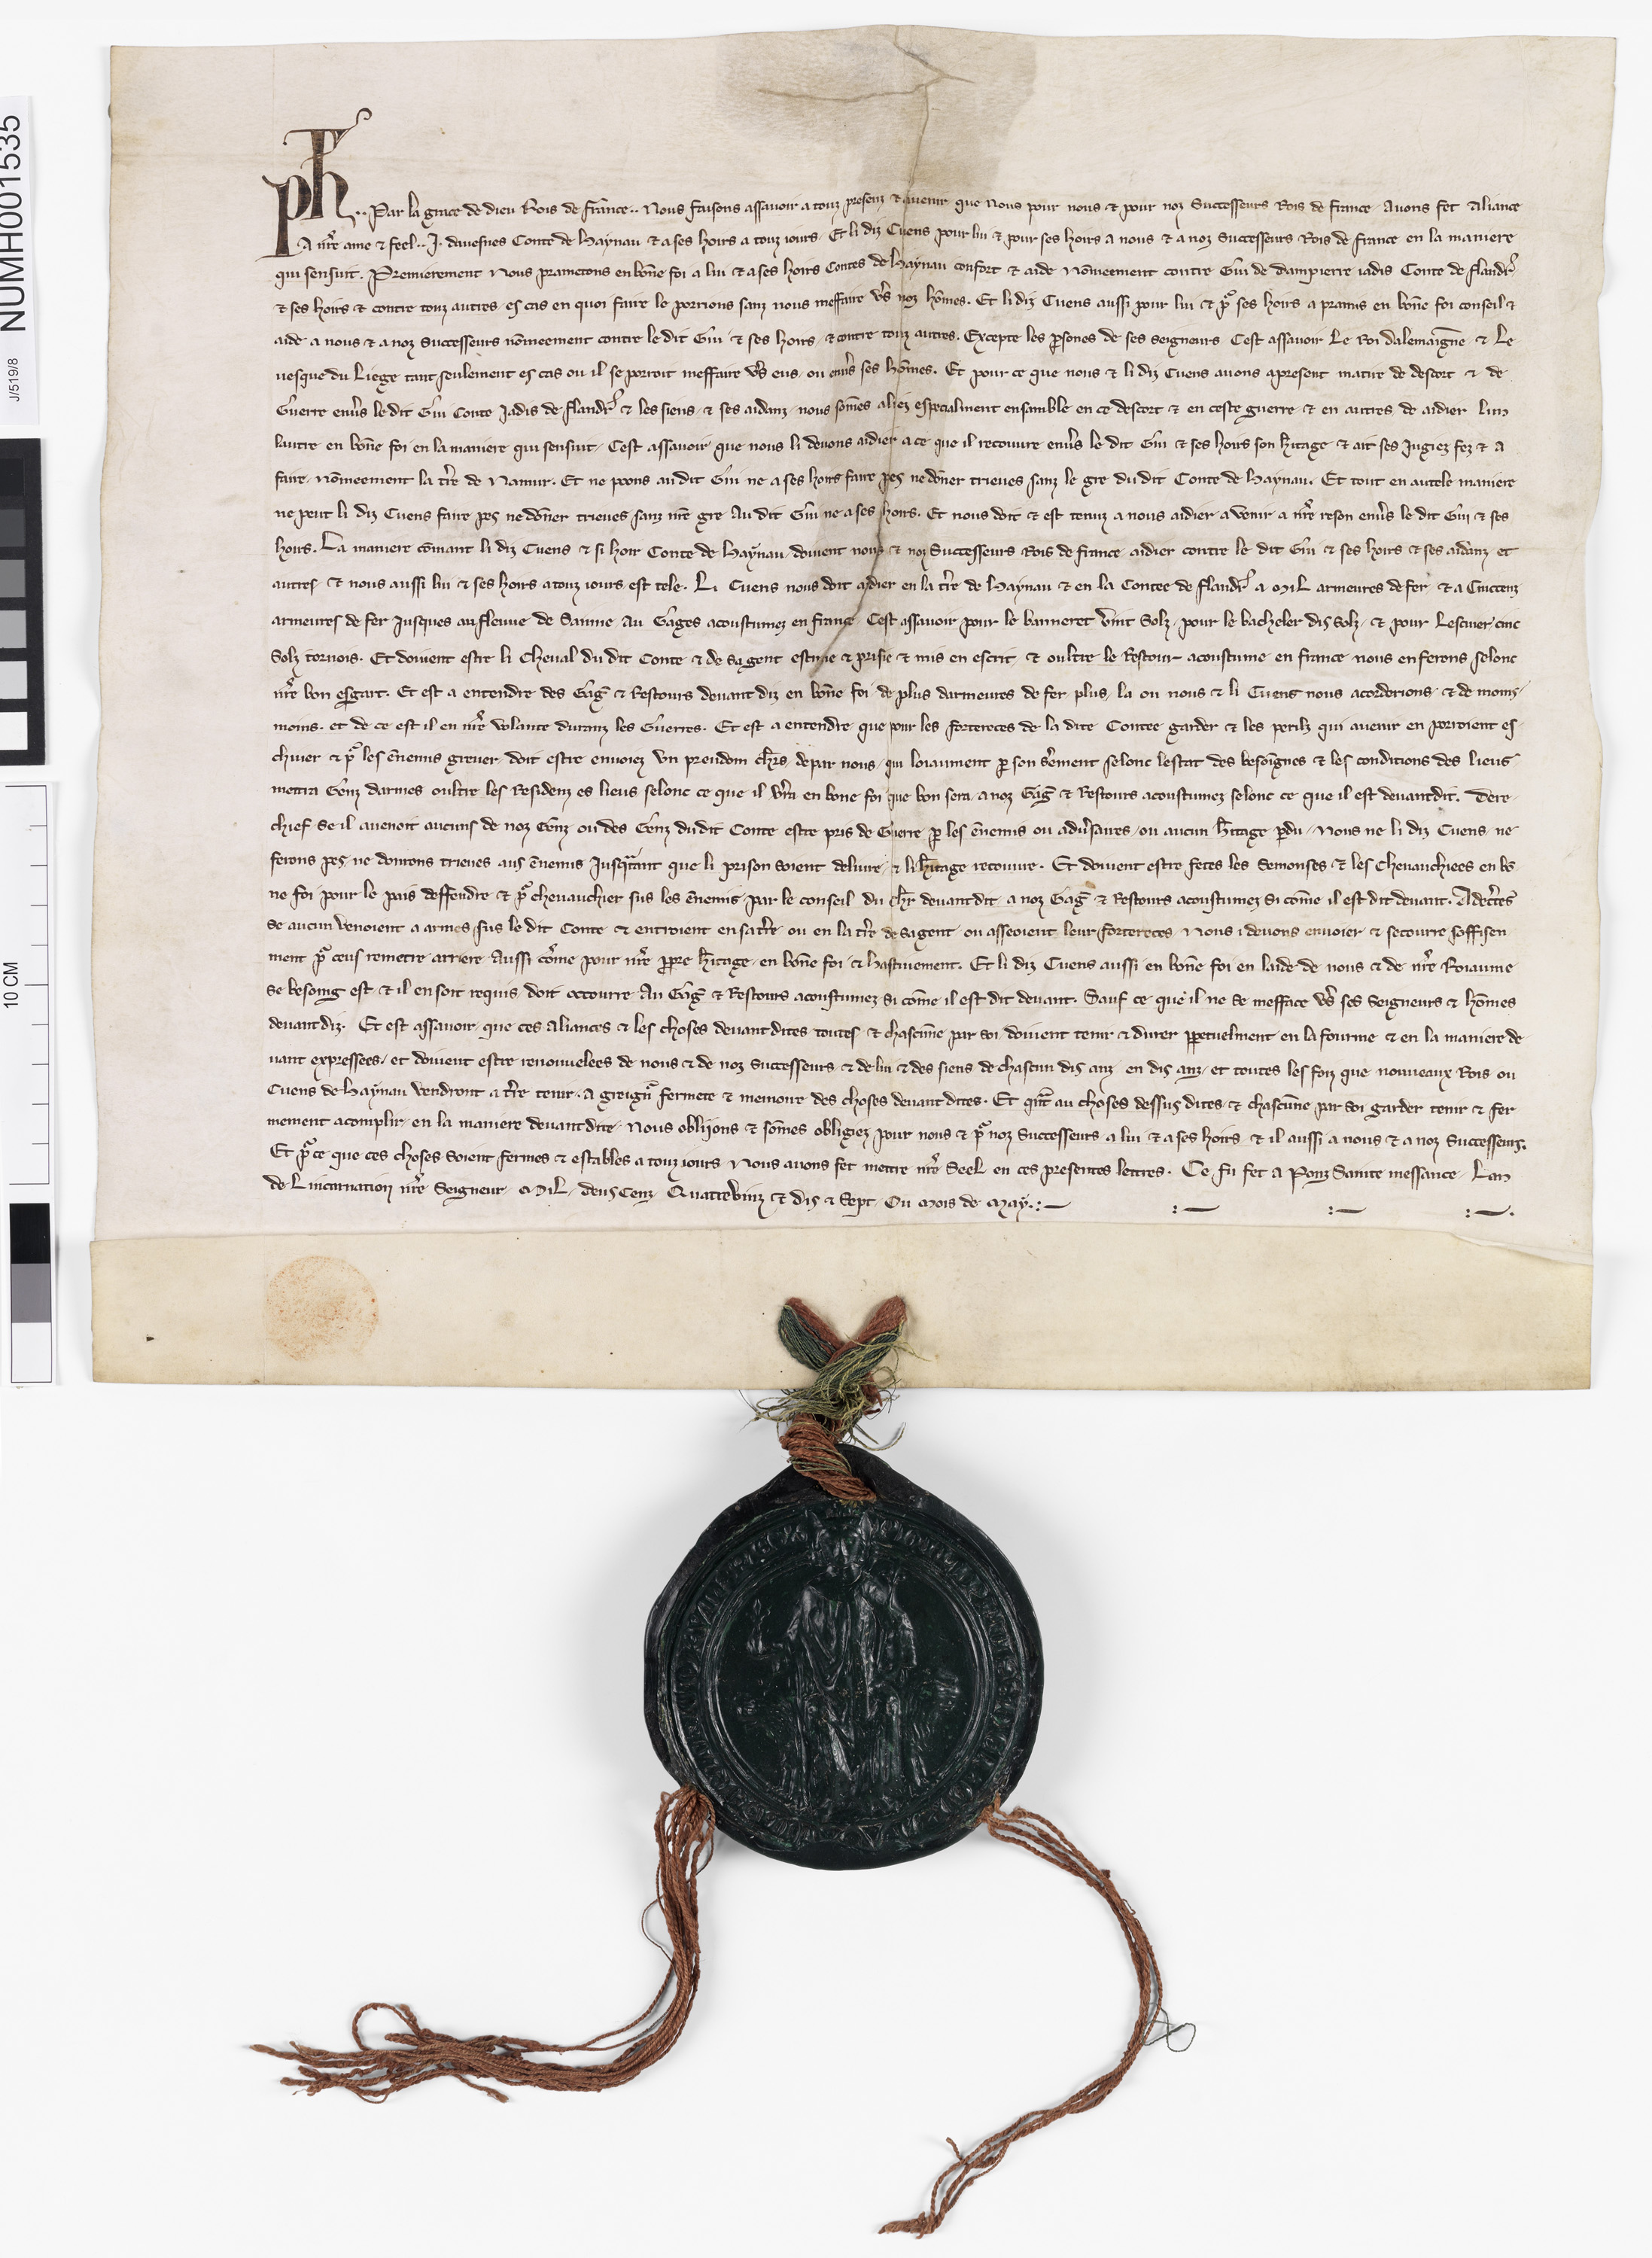 NUMH001535
J/519/8
10 CM
Ph.. Par la grace de dieu Rois de france.. Nous faisons assavoir a touz presenz & avenir que Nous pour nous & pour noz Successeurs Rois de france Avons fet Aliance
A nr̄e ame & feel.. J. davesnes Conte de Haynau & a ses hoirs a touz iours. Et li diz Cuens pour lui & pour ses hoirs a nous & a noz Successeurs Rois de france en la maniere
qui sensuit. Premierement Nous prametons en bōne foi a lui & a ses hoirs Contes de Haynau confort & aide nōmeement contre Gui de dampierre iadis Conte de flandr̄
& ses hoirs & contre touz autres es cas en quoi faire le porrions sanz nous meffaire vs̄ noz hōmes. Et li diz Cuens aussi pour lui & pr ses hoirs a pramis en bōne foi conseil &
aide a nous & a noz Successeurs nōmeement contre le dit Gui & ses hoirs & contre touz autres. Excepte les psones de ses seigneurs Cest assavoir Le Roi dalemaigne & Le
vesque du Liege tant seulement es cas ou il se porroit meffaire vs̄ eus, ou envs̄ ses hōmes. Et pour ce que nous & li diz Cuens avons apresent matire de descort & de
Guerre envs̄ le dit Gui Conte Jadis de flandr̄ & les siens & ses aidanz nous sōmes aliez especialment ensamble en ce descort & en ceste guerre & en autres de aidier lun
lautre en bōne foi en la maniere qui sensuit. Cest assavoir que nous li devons aidier a ce que il recouvre envs̄ le dit Gui & ses hoirs son h̄itage & ait ses Jugiez fez & a
faire, nōmeement la tr̄e de Namur. Et ne poons au dit Gui ne a ses hoirs faire pes ne dōner trieves sanz le gre du dit Conte de Haynau. Et tout en autele maniere
ne peut li diz Cuens faire pes ne dōner trieves sanz nr̄e gre Au dit Gui ne a ses hoirs. Et nous doit & est tenuz a nous aidier a venir a nr̄e reson envs̄ le dit Gui & ses
hoirs. La maniere cōmant li diz Cuens & si hoir Conte de Haynau doivent nous & noz Successeurs Rois de france aidier contre le dit Gui & ses hoirs & ses aidanz et
autres & nous aussi lui & ses hoirs a touz iours est tele. Li Cuens nous doit aidier en la tr̄e de Haynau & en la Contee de flandr̄ a Mil armeures de fer & a Cinccenz
armeures de fer Jusques au fleuve de Sainne Au Gages acoustumez en france Cest assavoir pour le banneret vint Solz, pour le bacheler dis Solz, & pour Lescuier cinc
Solz tornois. Et doivent estre li Cheval du dit Conte & de sa gent estime & prisie & mis en escrit & oultre le Restour acoustume en france nous en ferons selonc
nr̄e bon esgart. Et est a entendre des Gāg & Restours devant diz en bōne foi de plus darmeures de fer plus, la ou nous & li Cuens nous acorderions & de moins
moins. et de ce est il en nr̄e volante duranz les Guerres. Et est a entendre que pour les fortereces de la dite Contee garder & les perilz qui avenir en porroient es
chiver & pr les ēnemis grever, doit estre envoiez un preudom chr̄s de par nous, qui loiaument p son s̄ement selonc lestat des besoignes & les conditions des lieus
mettra Genz darmes oultre les Residenz es lieus selonc ce que il vr̄a en bone foi que bon sera, a noz Gāg & Restours acoustumez selonc ce que il est devant dit. Dere
chief se il avenoit aucuns de noz Genz ou des Genz du dit Conte estre pris de Guerre p les ēnemis ou advs̄aires, ou aucun h̄itage pdu, Nous ne li diz Cuens ne
ferons pes, ne donrons trieves aus ēnemis Jusqtant que li prison soient delivre & li h̄itage recouvre. Et doivent estre fetes les Semonses & les Chevauchiees en bō
ne foi pour le pais deffendre & pr chevauchier sus les ēnemis par le conseil du chr̄ devant dit a noz Gāg & Restours acoustumez si cōme il est dit devant. Adec̄tes
se aucun venoient a armes sus le dit Conte & entroient en sa tr̄e ou en la tr̄e de sa gent ou asseoient leur fortereces Nous i devons envoier & secourre soffisen
ment pr ceus remetre arriere Aussi cōme pour nr̄e ppre h̄itage en bōne foi & hastivement. Et li diz Cuens aussi en bōne foi en laide de nous & de nr̄e Roiaume
se besoing est & il en soit requis doit accourre Au Gāg & Restours acoustumez si cōme il est dit devant. Sauf ce que il ne se mefface vs̄ ses Seigneurs & hōmes
devant diz. Et est assavoir que ces Aliances & les choses devant dites toutes & chascune par soi doivent tenir & durer ppetuelment en la fourme & en la maniere de
vant expressees. et doivent estre renouvelees de nous & de noz Successeurs & de lui & des siens de chascun dis anz en dis anz, et toutes les foiz que nouveaux Rois ou
Cuens de Haynau vendront a tr̄e tenir. a greignr fermete & memoire des choses devant dites. Et qnt au choses dessus dites & chascune par soi garder tenir & fer
mement acomplir en la maniere devant dite Nous oblijons & sōmes obligiez pour nous & pr noz Successeurs a lui & a ses hoirs & il aussi a nous & a noz Successeurs.
Et pr ce que ces choses soient fermes & estables a touz iours Nous avons fet mettre nr̄e Seel en ces presentes lettres. Ce fu fet a Ponz Sainte messance. Lan
de Lincarnation nr̄e Seigneur Mil. deus Cenz Quatrevinz & dis & Sept. Ou Mois de May.